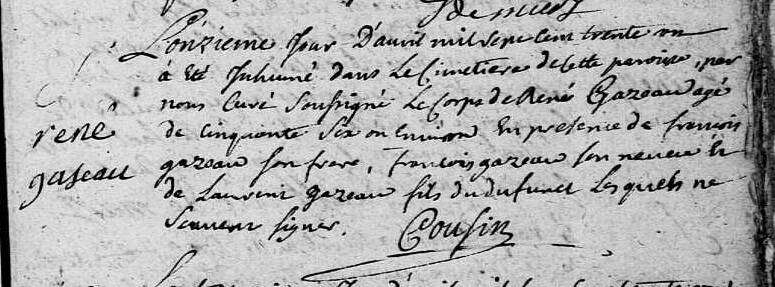 L'onzieme Jour D'avril mil sept cent trente un
à été Inhumé dans Le Cimetiere de cette paroisse, par
nous Curé Soussigné Le Corps de René Gazeau agé
de Cinquante Six ou Environ En presence de francois
gazeau son frere, francois gazeau son neveu Et
de Laurent gazeau fils du dufunct Lesquels ne
Scavent signer.
Cousin
rené
gaseau